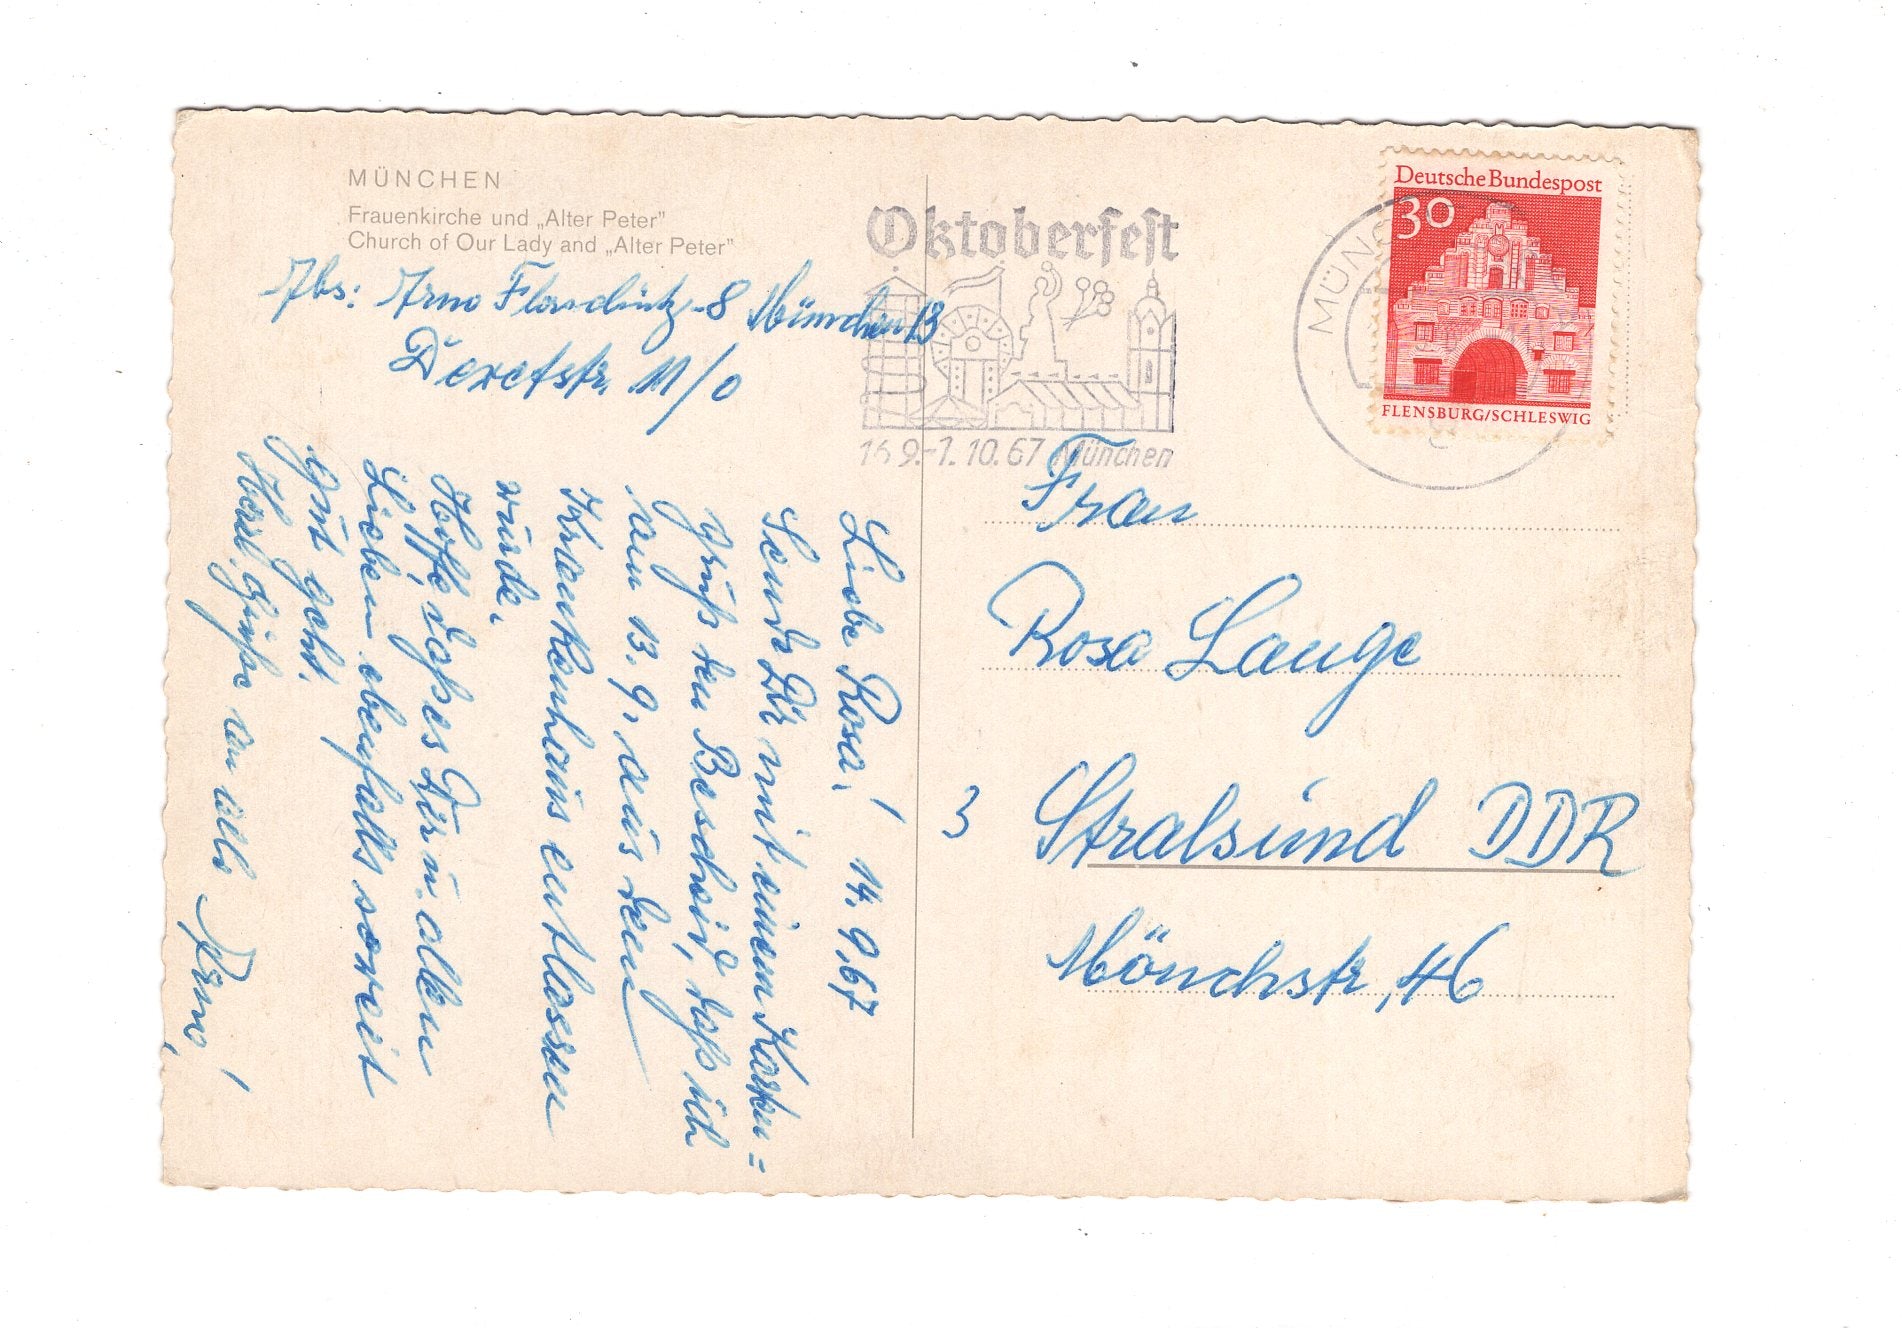 MÜNCHEN
Frauenkirche und „Alter Peter"
Church of Our Lady and „Alter Peter"
Abs: Arno -8 München 13
11/0
Liebe Rosa! 14.9.67
Sende Dir mit einem Karten=
gruß den Bescheid, daß ich
am 13.9. aus dem
Krankenhaus entlassen
wurde.
Hoffe, daß es Dir u. allen
Lieben ebenfalls soweit
gut geht.
Herzl. Grüße an alle Arno!
Oktoberfest
16.9.-1.10.67 München
MÜNC
Deutsche Bundespost
30
FLENSBURG/SCHLESWIG
Frau
Rosa Lange
3 Stralsund DDR
Mönchstr. 46